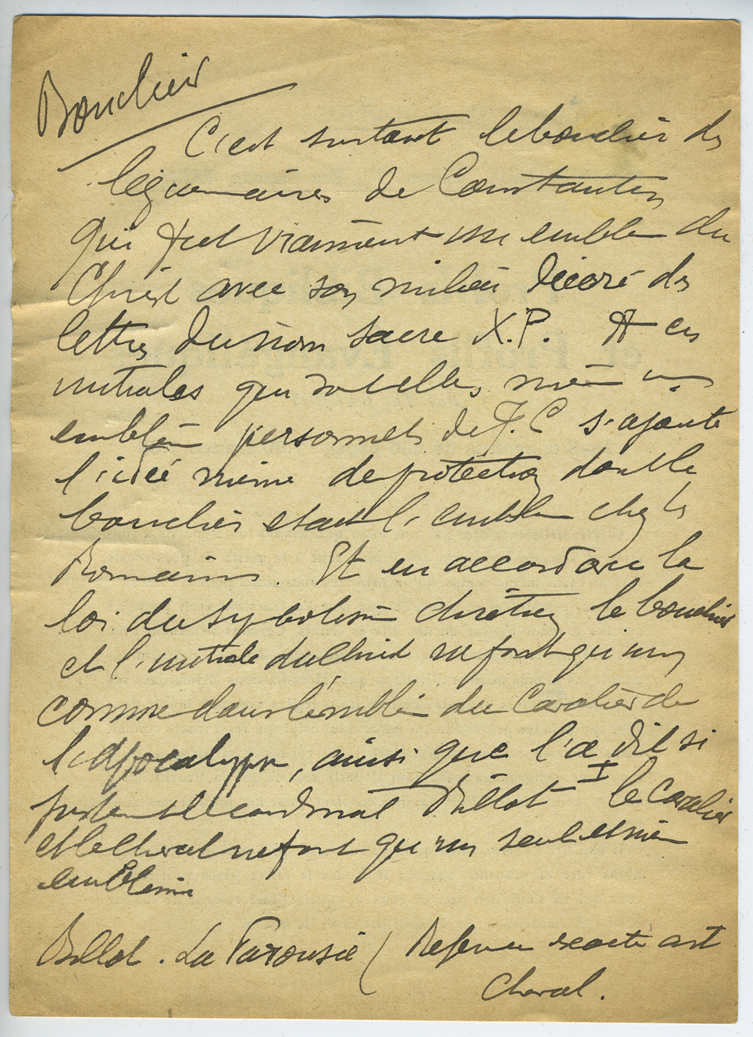 Bouclier
C'est surtout le bouclier des
légionnaires de Constantin
qui fut vraiment un emblem du
Christ avec son milieu décoré des
lettres du nom sacré X.P. A ces
initiales qui sont elles mêm un
emblêm personnel de J.C s'ajoute
l'idée même de protection dont le
bouclier était l'emblem chez les
Romains. Et en accord avec la
loi du symbolism chrétien le bouclier
et l'initiale du Christ ne font qu'un
comme dans l'emblêm du Cavalier de
l'Apocalypse, ainsi que l'a dit si
justement le cardinal Billot I le cavalier
et le cheval ne font qu'un seul et mêm
emblème
Billot. La Parousie ( Référence exacte art
Cheval.